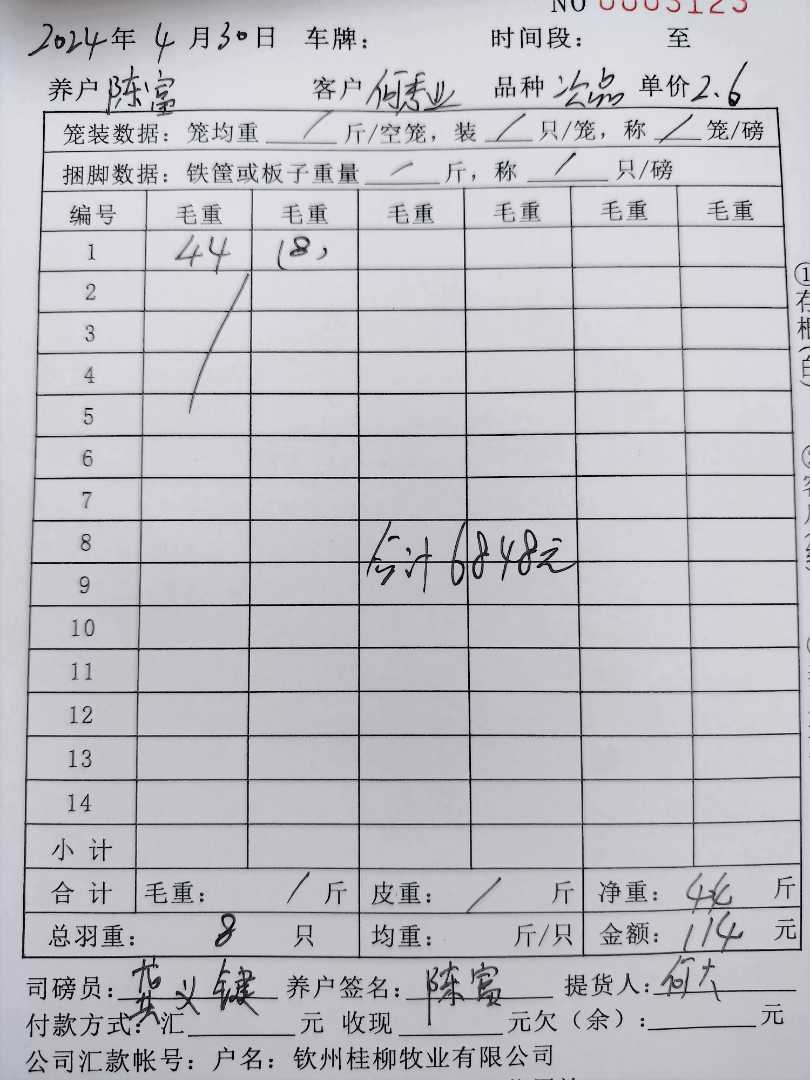 NO 0003123
2024年 4 月 30 日 车牌： 时间段： 至
养户 陈富 客户 何秀业 品种 次品 单价 2.6
笼装数据：笼均重 / 斤/空笼，装 / 只/笼，称 / 笼/磅
捆脚数据：铁筐或板子重量 / 斤，称 / 只/磅
编号 毛重 毛重 毛重 毛重 毛重 毛重
1 44 (8)
2
3
4
5
6
7
8 合计6848元
9
10
11
12
13
14
小计
合计 毛重： / 斤 皮重： / 斤 净重： 44 斤
总羽重： 8 只 均重： 斤/只 金额： 114 元
司磅员： 义键 养户签名： 陈富 提货人： 何
付款方式：汇 元 收现 元欠（余）： 元
公司汇款帐号：户名：钦州桂柳牧业有限公司